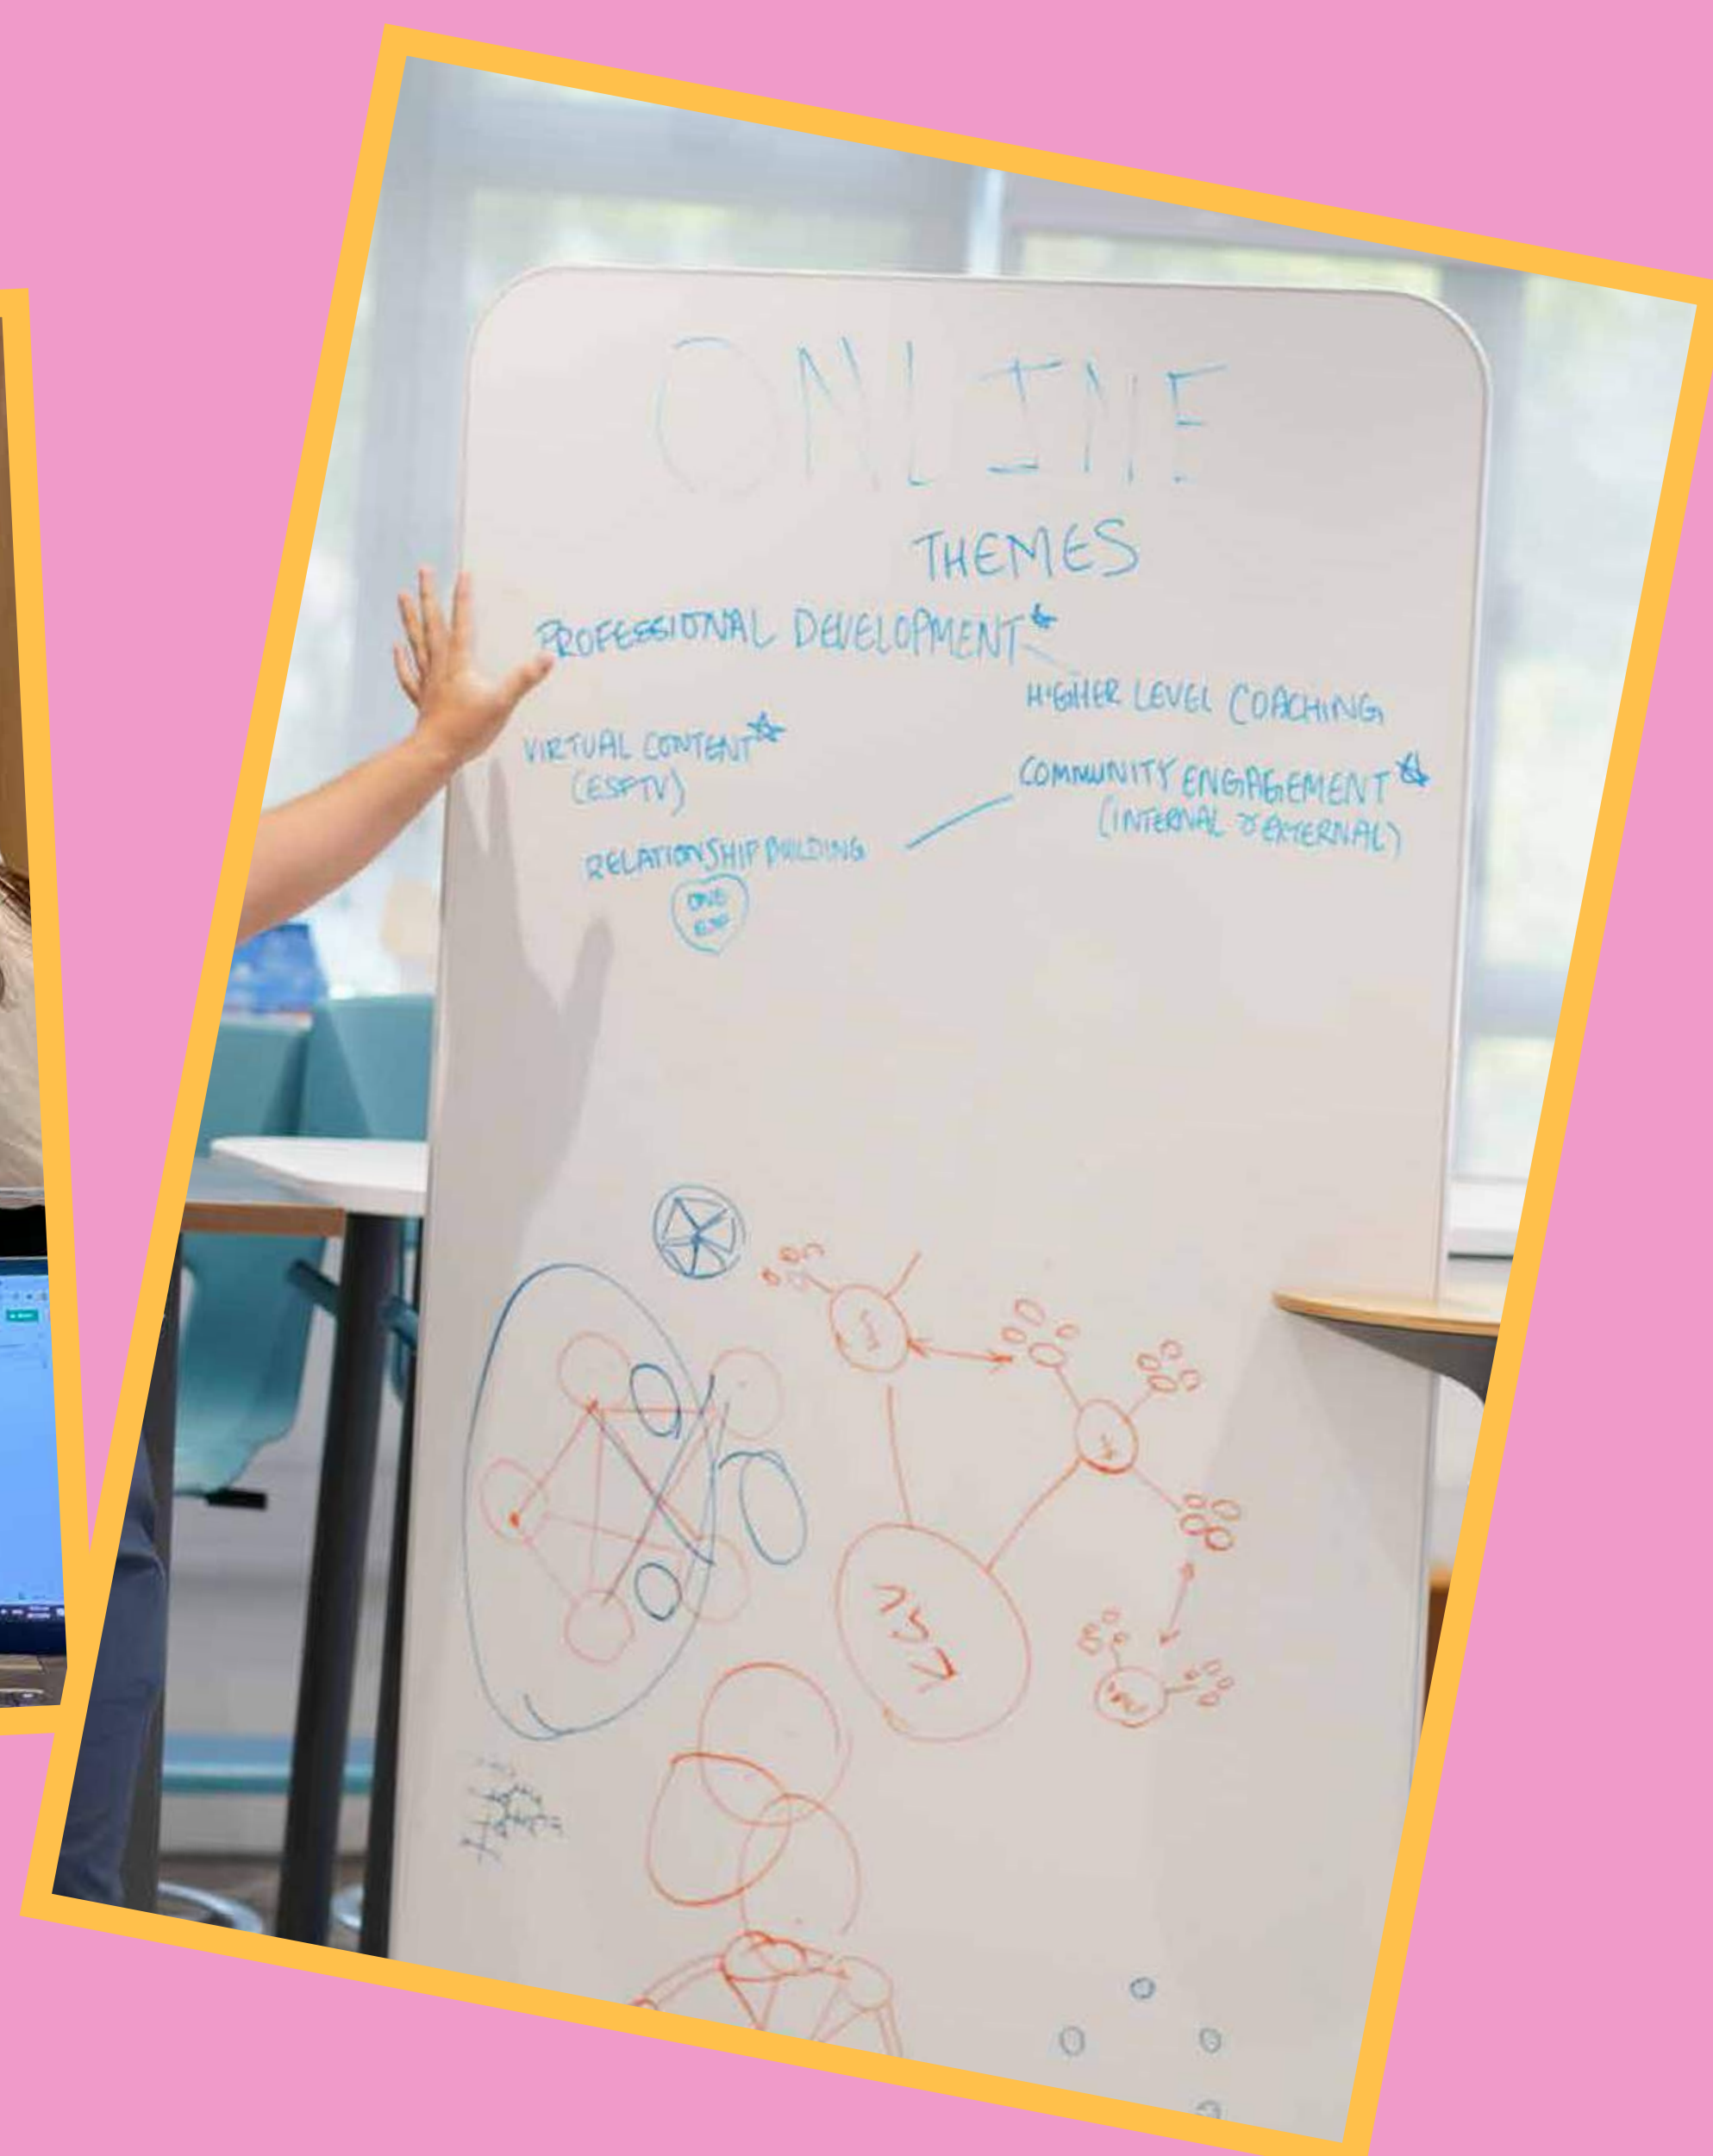 ONLINE
THEMES
PROFESSIONAL DEVELOPMENT
HIGHER LEVEL COACHING
VIRTUAL CONTENT
(ESFTV)
COMMUNITY ENGAGEMENT
(INTERNAL & EXTERNAL)
RELATIONSHIP BUILDING
ONE
ESF